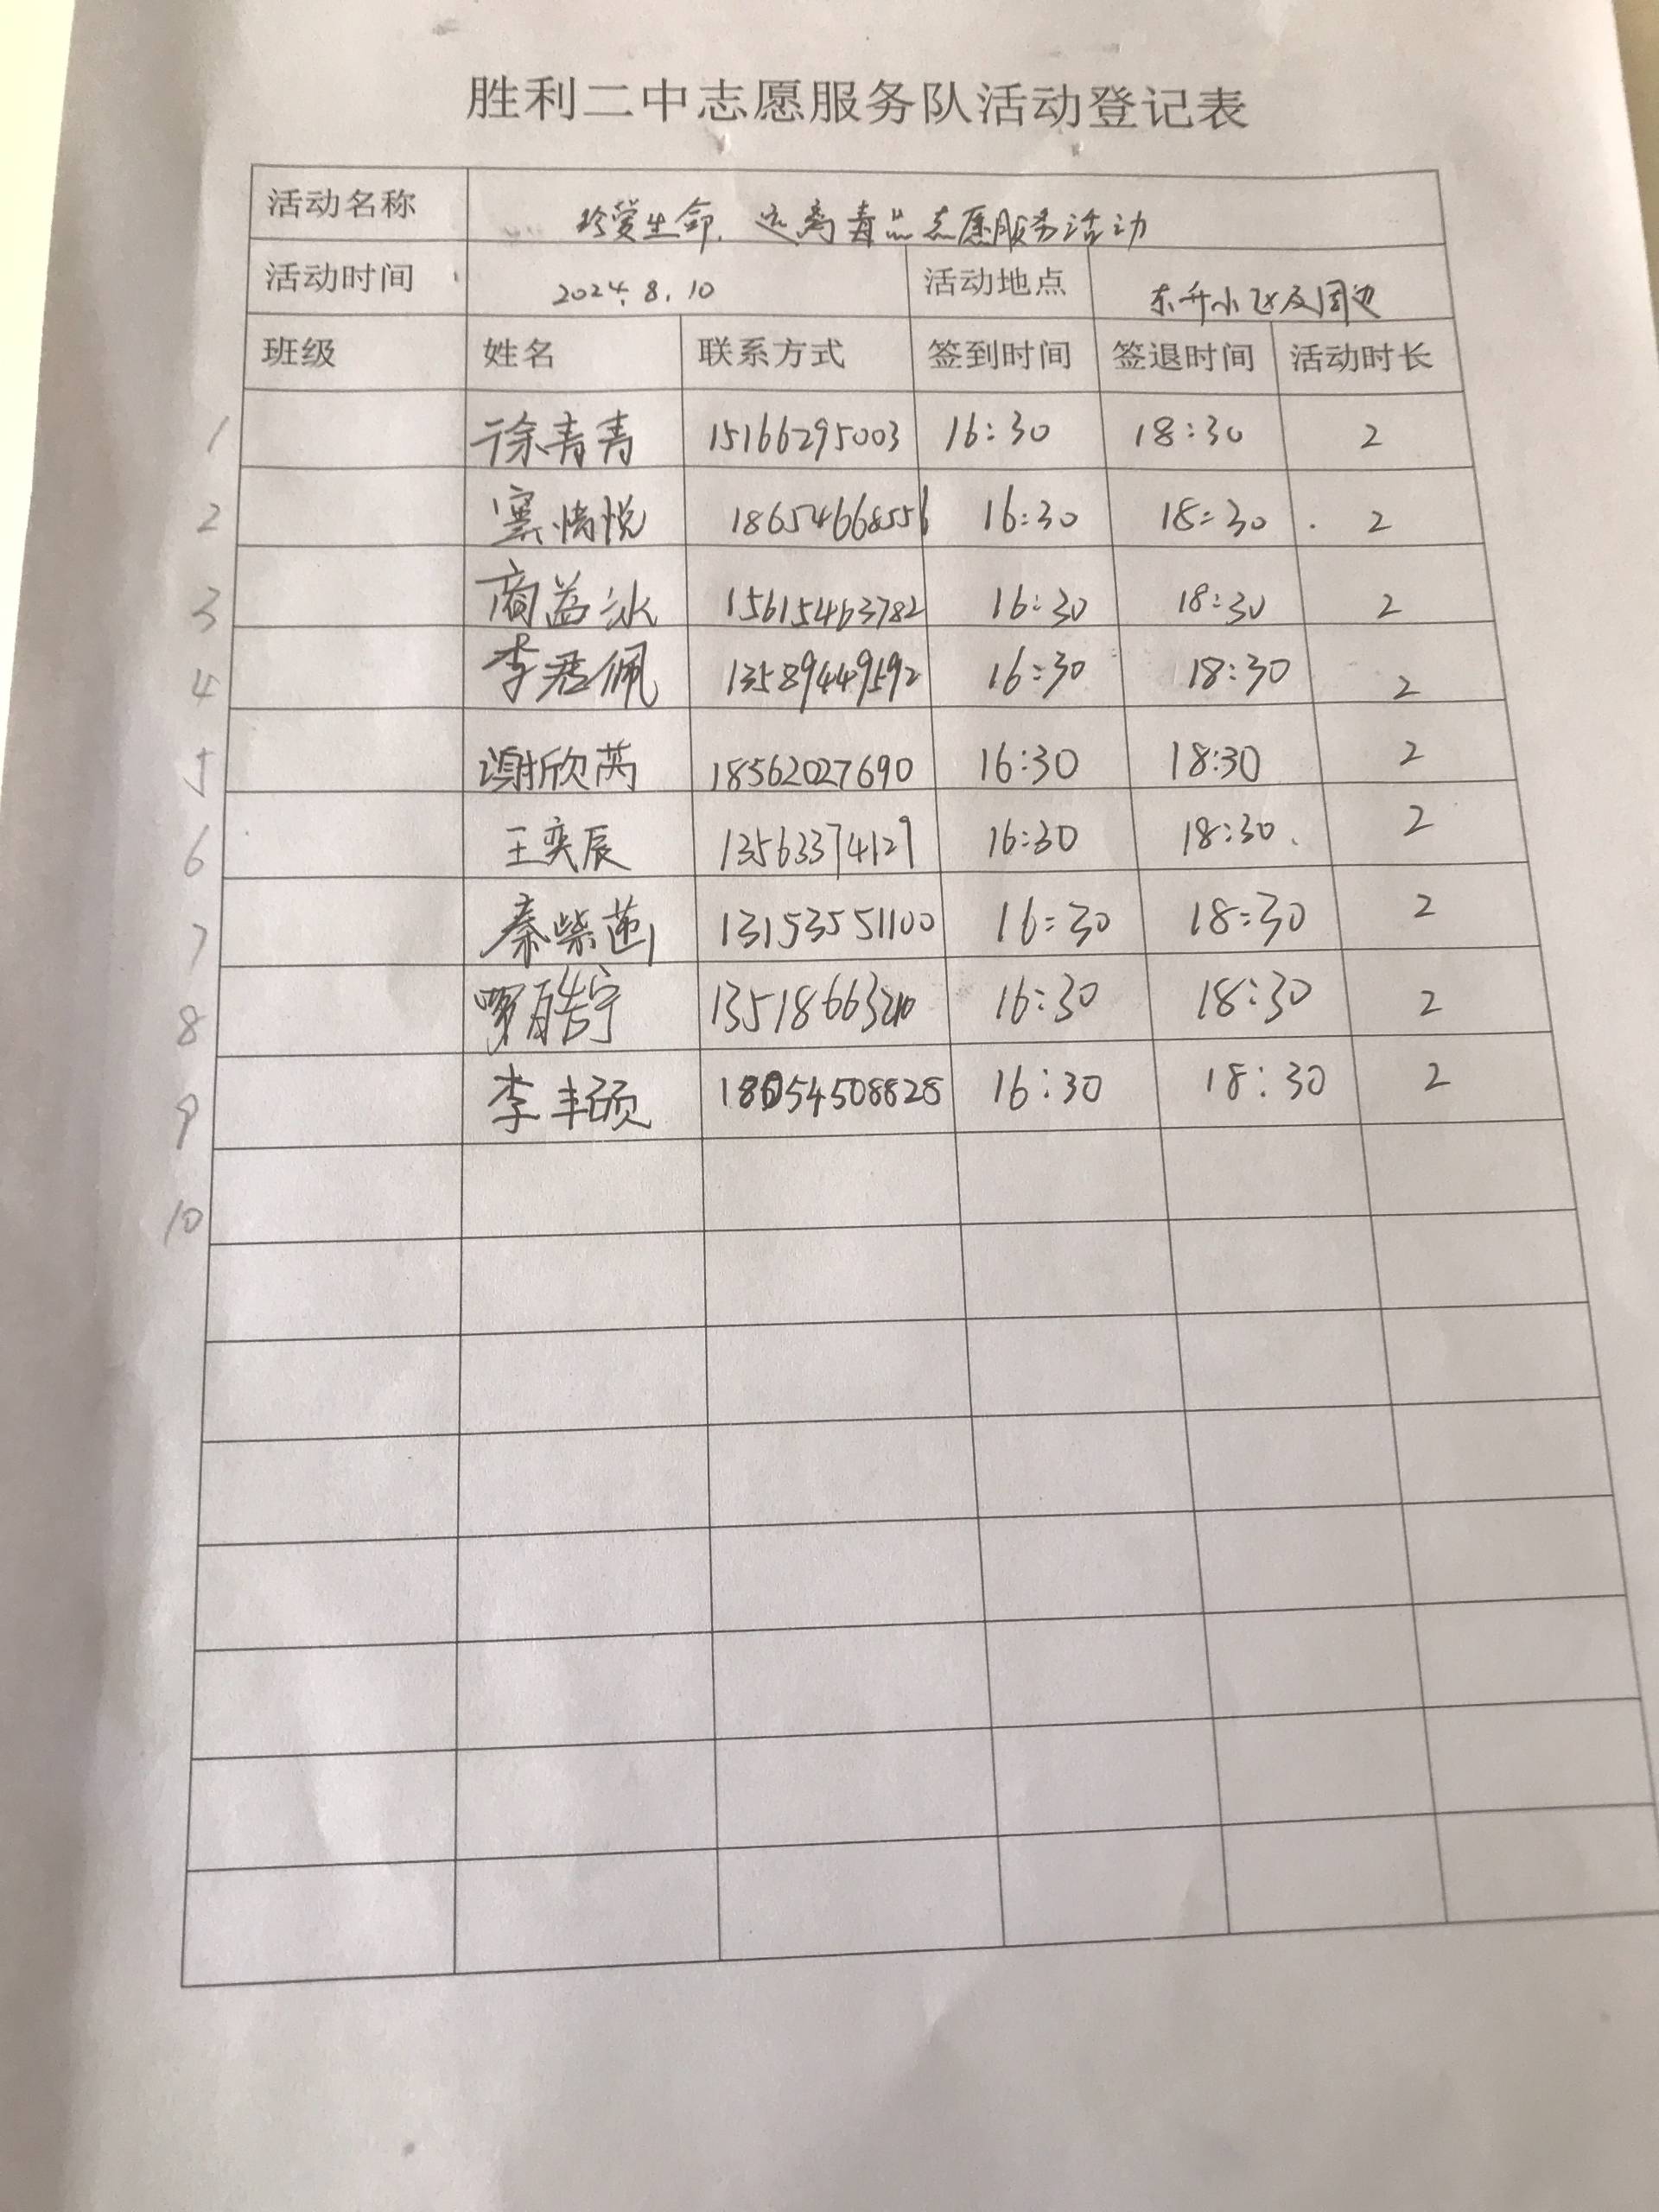 胜利二中志愿服务队活动登记表
活动名称 珍爱生命.远离毒品志愿服务活动
活动时间 2024.8.10 活动地点 东升小区及周边
班级 姓名 联系方式 签到时间 签退时间 活动时长
1 徐青青 15166295003 16:30 18:30 2
2 悦 18654668556 16:30 18:30 2
3 商益冰 15615463782 16:30 18:30 2
4 李君佩 13589449592 16:30 18:30 2
5 谢欣芮 18562027690 16:30 18:30 2
6 王奕辰 13563374129 16:30 18:30 2
7 秦紫 13153551100 16:30 18:30 2
8 贾皓宁 16:30 18:30 2
9 李丰硕 18054508828 16:30 18:30 2
10